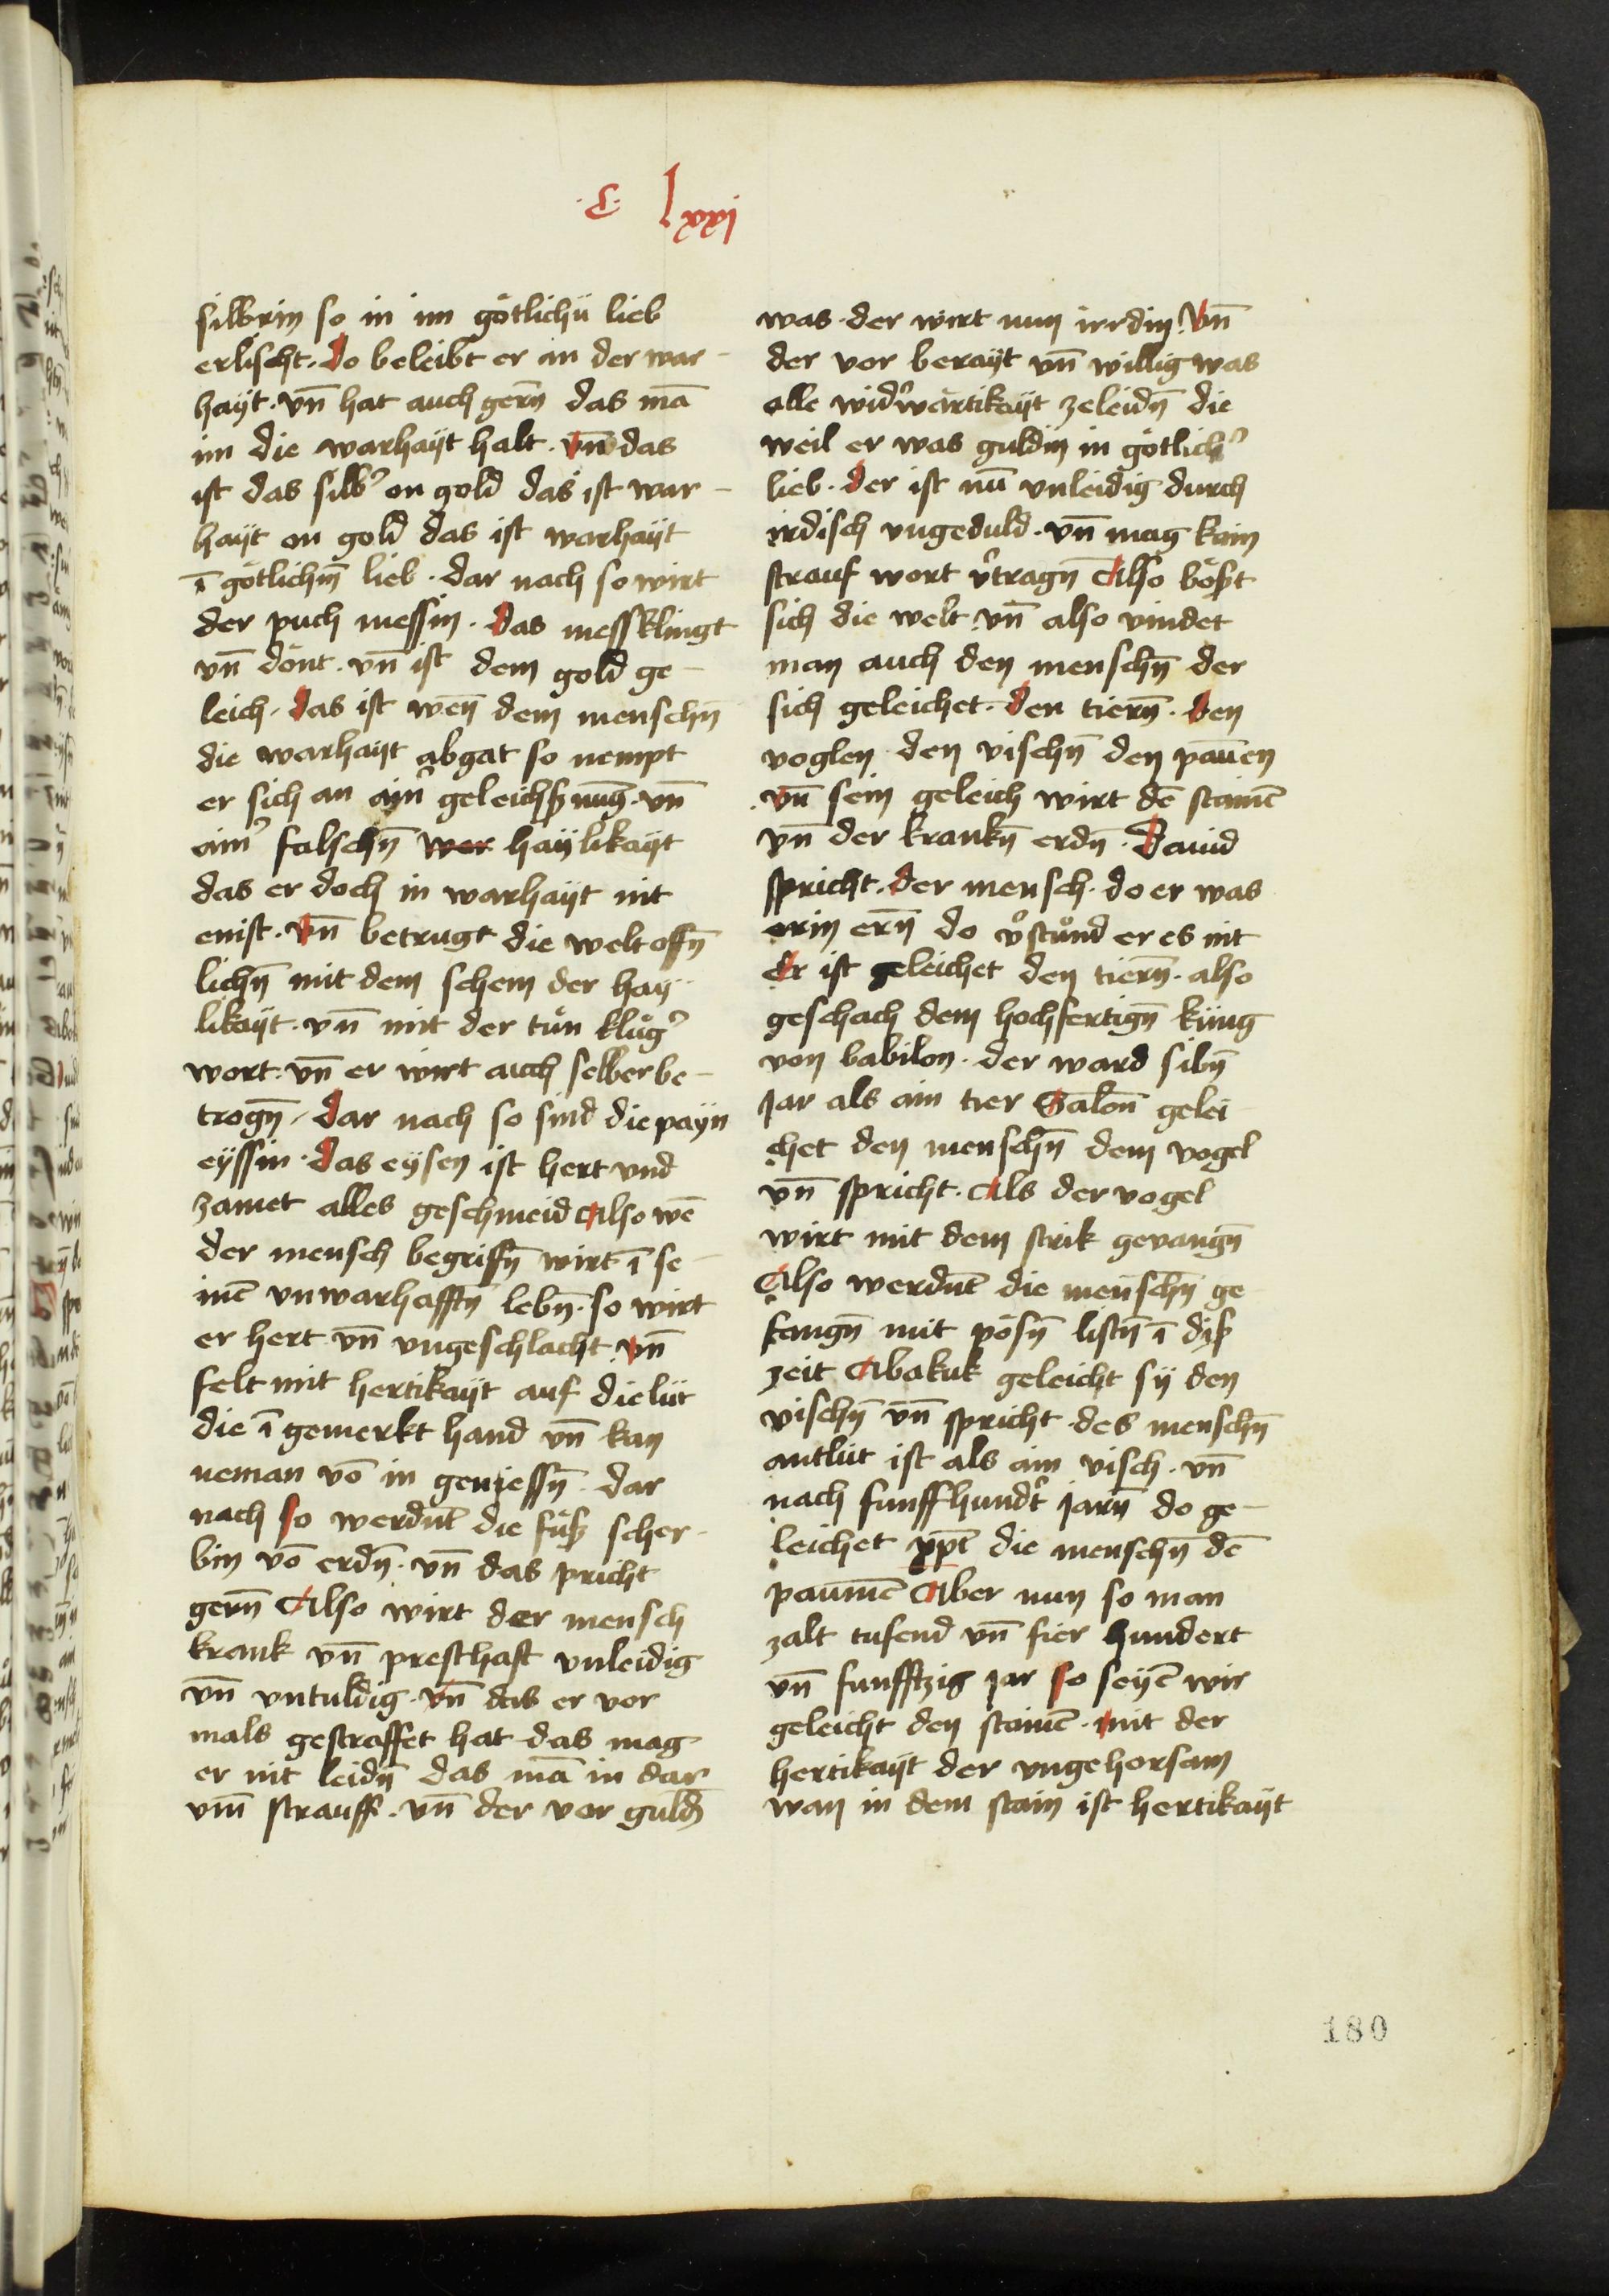 ·C· lxxj
silbrin so in im götlichü lieb
erlischt. do beleibt er in der war-
hayt. vn̄ hat auch gern̄ das mā
im die warhayt halt. vn̄ das
ist das silb' on gold das ist war-
hayt on gold das ist warhayt
ī götlichn̄ lieb. dar nach so wirt
der puch messin. das mess klingt
vn̄ dönt. vn̄ ist dem gold ge-
leich. das ist wen̄ dem menschn̄
die warhayt abgat so nempt
er sich an ain' geleichßnung. vn̄
aim' falschn̄ war haylikayt
das er doch in warhayt nit
enist. vn̄ betrugt die welt offn̄
lichn̄ mit dem schem der hay-
likayt. vn̄ mit der tün klůg'
wort. vn̄ er wirt auch selber be-
trogn̄. dar nach so sind die payn
eyssin. das eysen ist hert vnd
zamet alles geschmeid Also wē
der mensch begriffn̄ wirt ī se-
inē vnwarhafftn̄ lebn̄. so wirt
er hert vn̄ vngeschlacht vn̄
felt mit hertikayt auf die lüt
die ī gemerkt hand vn̄ kan
neman vō in geniessn̄. dar
nach so werdnt die füß scher-
bin vō erdn̄. vn̄ das pricht
gern̄ Also wirt der mensch
krank vn̄ presthaft vnleidig
vn̄ vntuldig. vn̄ das er vor
mals gestraffet hat das mag
er nit leidn̄ das mā in dar
vm̄ strauff. vn̄ der vor guldn̄
was. der wirt nun irrdin. vn̄
der vor berayt vn̄ willig was
alle wid'wärtikayt zeleidn̄ die
weil er was guldin in götlich'
lieb. der ist nū vnleidig durch
irdisch vngeduld. vn̄ mag kain
strauf wort v'tragn̄ Also bößt
sich die welt vn̄ also vindet
man auch den menschn̄ der
sich geleichet. den tiern̄. den
voglen den vischn̄ den paūen
vn̄ sein geleich wirt dē stainē
vn̄ der krankn̄ erdn̄. Dauid
spricht. der mensch. do er was
in ern̄ do v'stůnd er es nit
Er ist geleichet den tiern̄. also
geschach dem hochfertign̄ küng
von babilon. der ward sibn̄
Jar als ain tier Salon̄ gelei
chet den menschn̄ dem vogel
vn̄ spricht. Als der vogel
wirt mit dem strik gevangn̄
Also werdnt die menschn̄ ge
fangn̄ mit pösn̄ listn̄ ī diß
zeit Abakuk geleicht sy den
vischn̄ vn̄ spricht des menschn̄
antlüt ist als ain visch. vn̄
nach funffhundt' jarn̄ do ge-
leichet xp̄t die menschn̄ dē
paumē Aber nun so man
zalt tusend vn̄ fier hundert
vn̄ funfftzig jar so seyē wir
geleicht den stainē. mit der
hertikayt der vngehorsam
wan in dem stain ist hertikayt
180